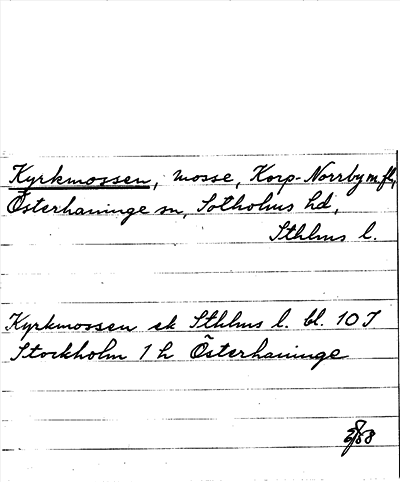 Kyrkmossen, mosse, Korp-Norrby m.fl,
Österhaninge sn, Sotholms hd,
Sthlms l.
Kyrkmossen ek Sthlms l. bl. 10 I
Stockholm 1 h Österhaninge